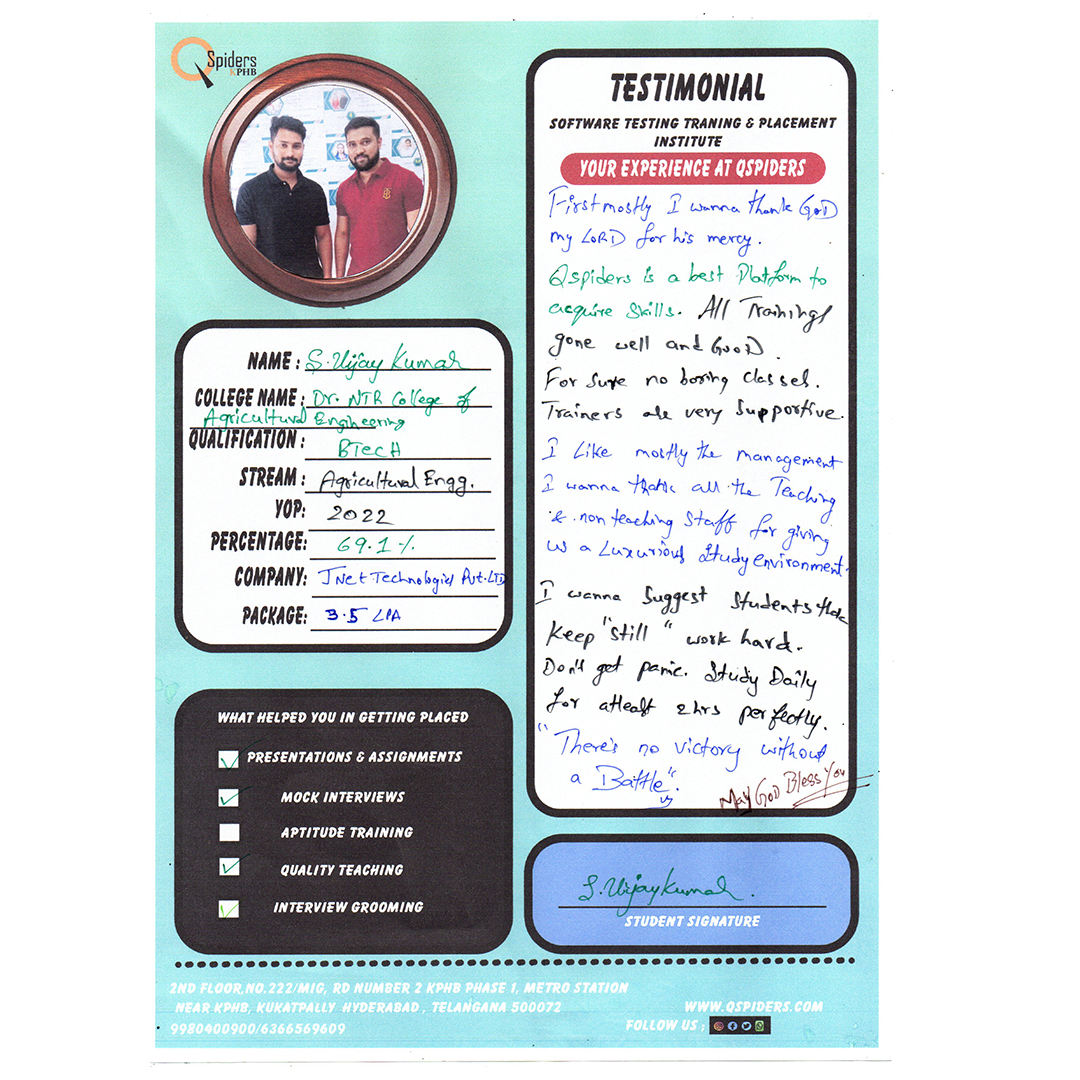 QSpiders
KPHB
NAME : S. Vijay Kumar
COLLEGE NAME : Dr. NTR College of
Agricultural Engineering
QUALIFICATION : BTecH
STREAM : Agricultural Engg.
YOP: 2022
PERCENTAGE: 69.1 %
COMPANY: JNet Technologies Pvt. LTD
PACKAGE: 3.5 LPA
WHAT HELPED YOU IN GETTING PLACED
PRESENTATIONS & ASSIGNMENTS
MOCK INTERVIEWS
APTITUDE TRAINING
QUALITY TEACHING
INTERVIEW GROOMING
TESTIMONIAL
SOFTWARE TESTING TRANING & PLACEMENT
INSTITUTE
YOUR EXPERIENCE AT QSPIDERS
First mostly I wanna thank GOD
my LORD for his mercy.
Qspiders is a best Platform to
acquire skills. All Trainings
gone well and GOOD.
For sure no boring classes.
Trainers are very supportive.
I Like mostly the management
I wanna thank all the Teaching
& non teaching staff for giving
us a Luxurious study environment.
I wanna suggest students that
keep "still" work hard.
Don't get panic. Study Daily
for atleast 2 hrs perfectly.
"There's no victory without
a Battle".
May GOD Bless You
S. Vijay Kumar.
STUDENT SIGNATURE
2ND FLOOR,NO.222/MIG, RD NUMBER 2 KPHB PHASE 1, METRO STATION
NEAR KPHB, KUKATPALLY HYDERABAD , TELANGANA 500072
9980400900/6366569609
WWW.QSPIDERS.COM
FOLLOW US :